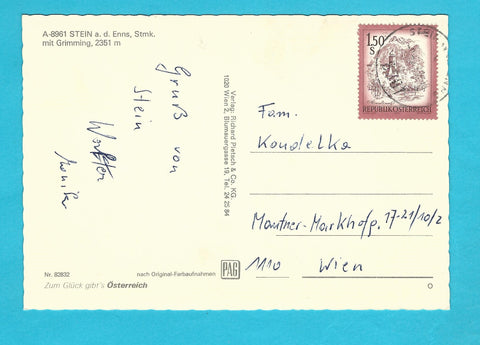 A-8961 STEIN a. d. Enns, Stmk.
mit Grimming, 2351 m
Gruß von
Stein
Monika
Verlag: Richard Pietsch & Co. KG.
1020 Wien 2, Blumauergasse 19, Tel. 24 25 84
1.50
S
REPUBLIK ÖSTERREICH
STEIN
Fam.
Koudelka
Mautner-Markhofg. 17-21/10/2
1110 Wien
Nr. 82832
nach Original-Farbaufnahmen
PAG
Zum Glück gibt's Österreich